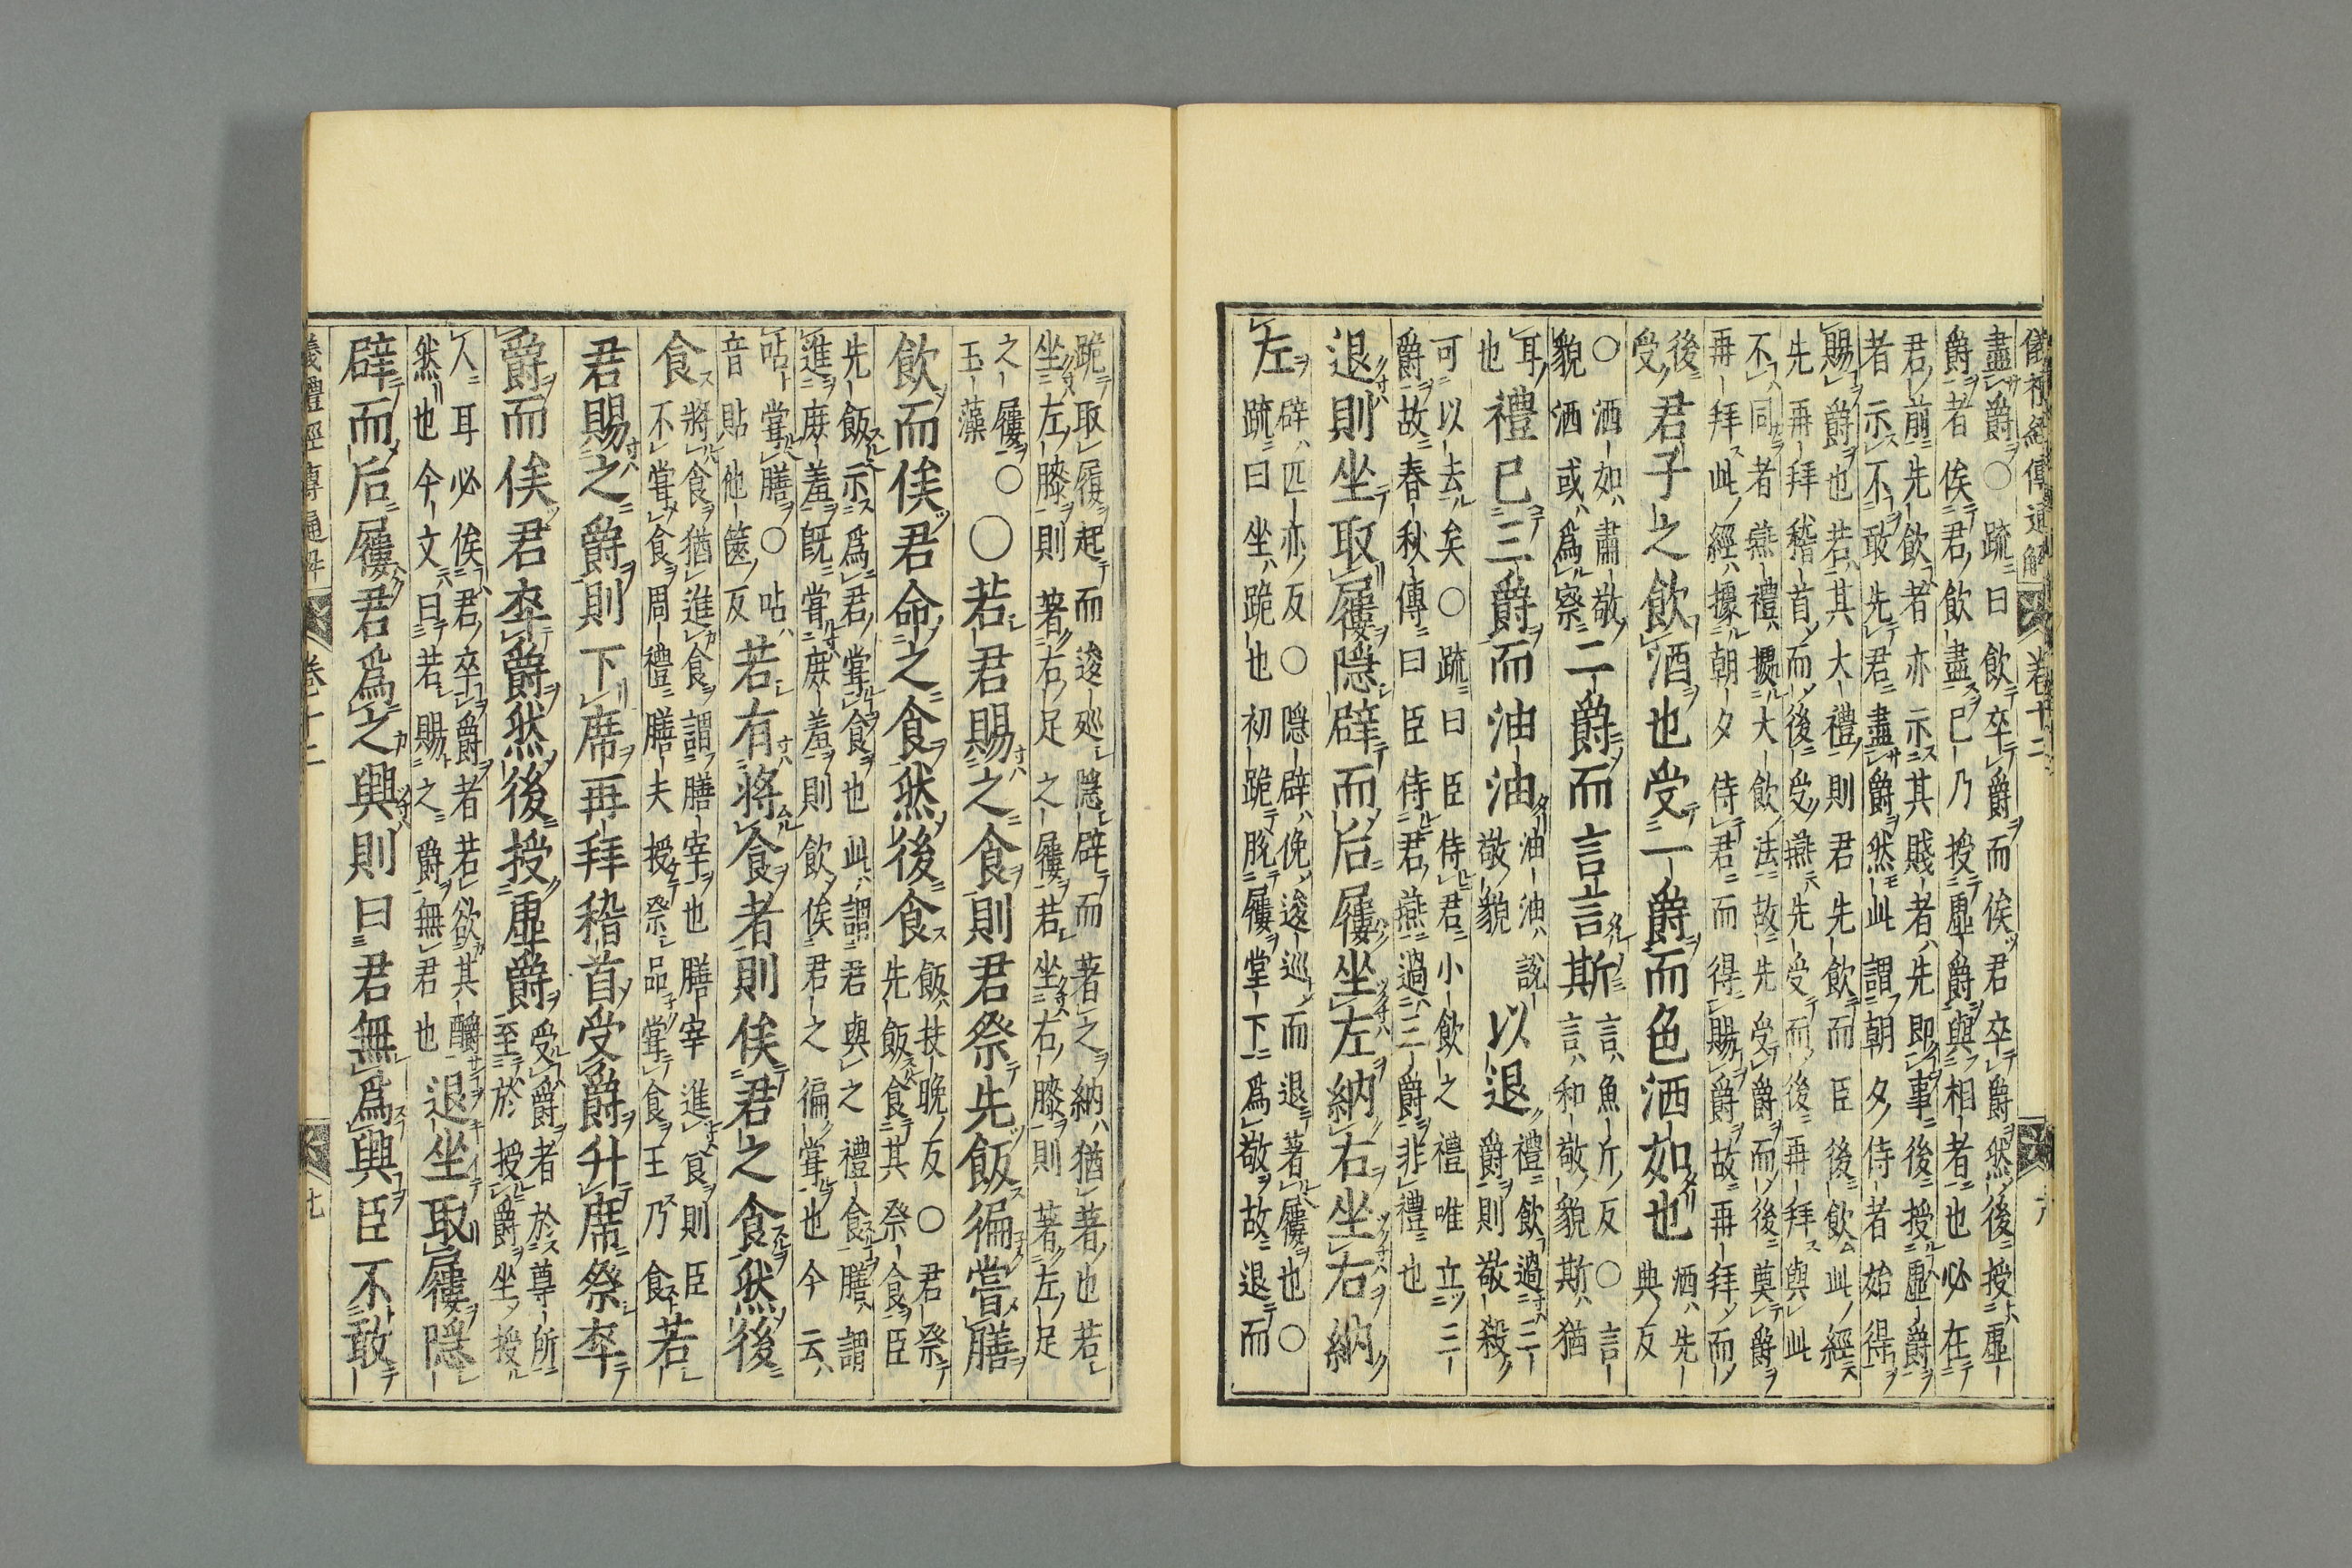 儀禮經傳通解 卷十二 六
盡爵○疏曰飲卒爵而俟君卒爵然後授虛
爵者俟君飲盡已乃授虛爵與相者也必在
君前先飲者亦示其賤者先即事後授虛爵
者示不敢先君盡爵然此謂朝夕侍者始得
賜爵也若其大禮則君先飲而臣後飲此經
先再拜稽首而後受燕先受而後再拜與此
不同者燕禮據大飲法故先受爵而後奠爵
再拜此經據朝夕侍君而得賜爵故再拜而
後
受君子之飲酒也受一爵而色洒如也洒先
典反
○洒如肅敬
貌洒或爲察二爵而言言斯言魚斤反○言
言和敬貌斯猶
耳
也禮已三爵而油油油油說
敬貌以退禮飲過三
爵則敬殺
可以去矣○疏曰臣侍君小飲之禮唯立三
爵故春秋傳曰臣侍君燕過三爵非禮也
退則坐取屨隱辟而后屨坐左納右坐右納
左辟匹亦反○隱辟俛逡巡而退著屨也○
疏曰坐跪也初跪脫屨堂下爲敬故退而
跪取屨起而逡巡隱辟而著之納猶著也若
坐左膝則著右足之屨若坐右膝則著左足
之屨○
玉藻○若君賜之食則君祭先飯徧嘗膳
飲而俟君命之食然後食飯扶晚反○君祭
先飯食其祭食臣
先飯示爲君嘗食也此謂君與之禮食膳謂
進庶羞既嘗庶羞則飲俟君之徧嘗也今云
呫嘗膳○呫
音貼他篋反若有將食者則俟君之食然後
食將食猶進食謂膳宰也膳宰進食則臣
不嘗食周禮膳夫授祭品嘗食王乃食若
君賜之爵則下席再拜稽首受爵升席祭卒
爵而俟君卒爵然後授虛爵受爵者於尊所
至於授爵坐授
人耳必俟君卒爵者若欲其釂
然也今文曰若賜之爵無君也退坐取屨隱
辟而后屨君爲之興則曰君無爲興臣不敢
儀禮經傳通解 卷十二 七